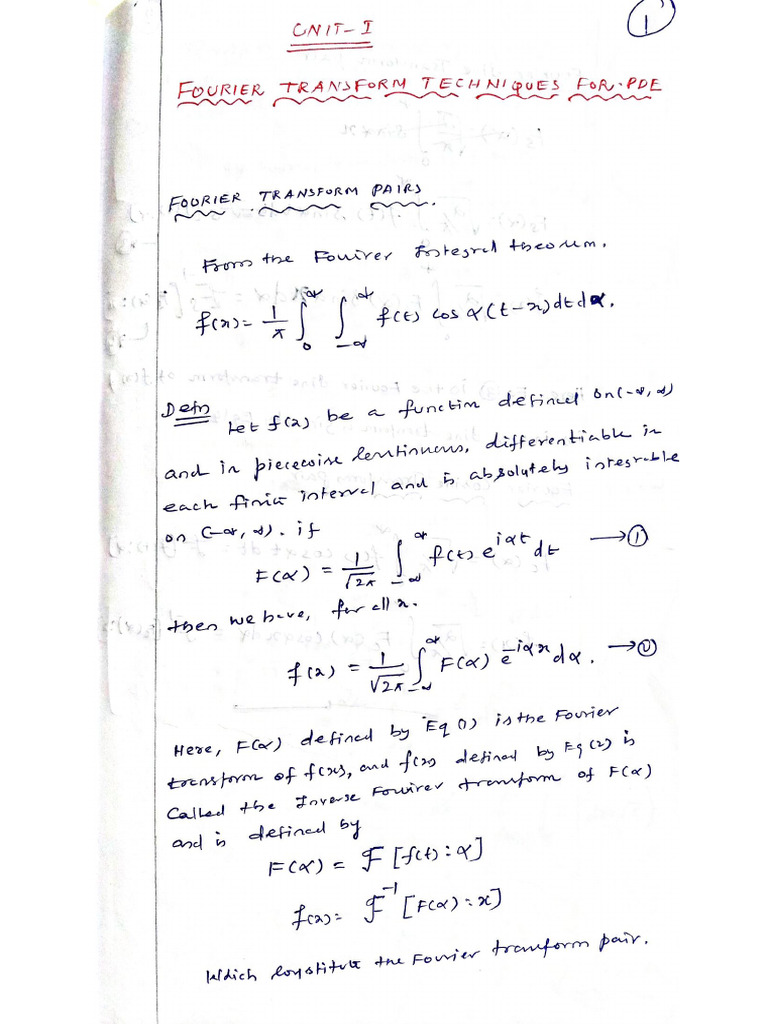 1
UNIT-I
FOURIER TRANSFORM TECHNIQUES FOR PDE
FOURIER TRANSFORM PAIRS.
From the Fourier Integral theorem.
f(x) = 1/π ∫_0^∞ ∫_{-∞}^∞ f(t) cos α(t-x) dt dα.
Defn Let f(x) be a function defined on (-∞, ∞)
and is piecewise continuous, differentiable in
each finite interval and is absolutely integrable
on (-∞, ∞). if
F(α) = 1/√2π ∫_{-∞}^∞ f(t) e^{iαt} dt → ①
then we have, for all x.
f(x) = 1/√2π ∫_{-∞}^∞ F(α) e^{-iαx} dα. → ②
Here, F(α) defined by Eq (1) is the Fourier
transform of f(x), and f(x) defined by Eq (2) is
Called the Inverse Fourier transform of F(α)
and is defined by
F(α) = F [f(t) : α]
f(x) = F^{-1} [F(α) : x]
Which constitute the Fourier transform pair.